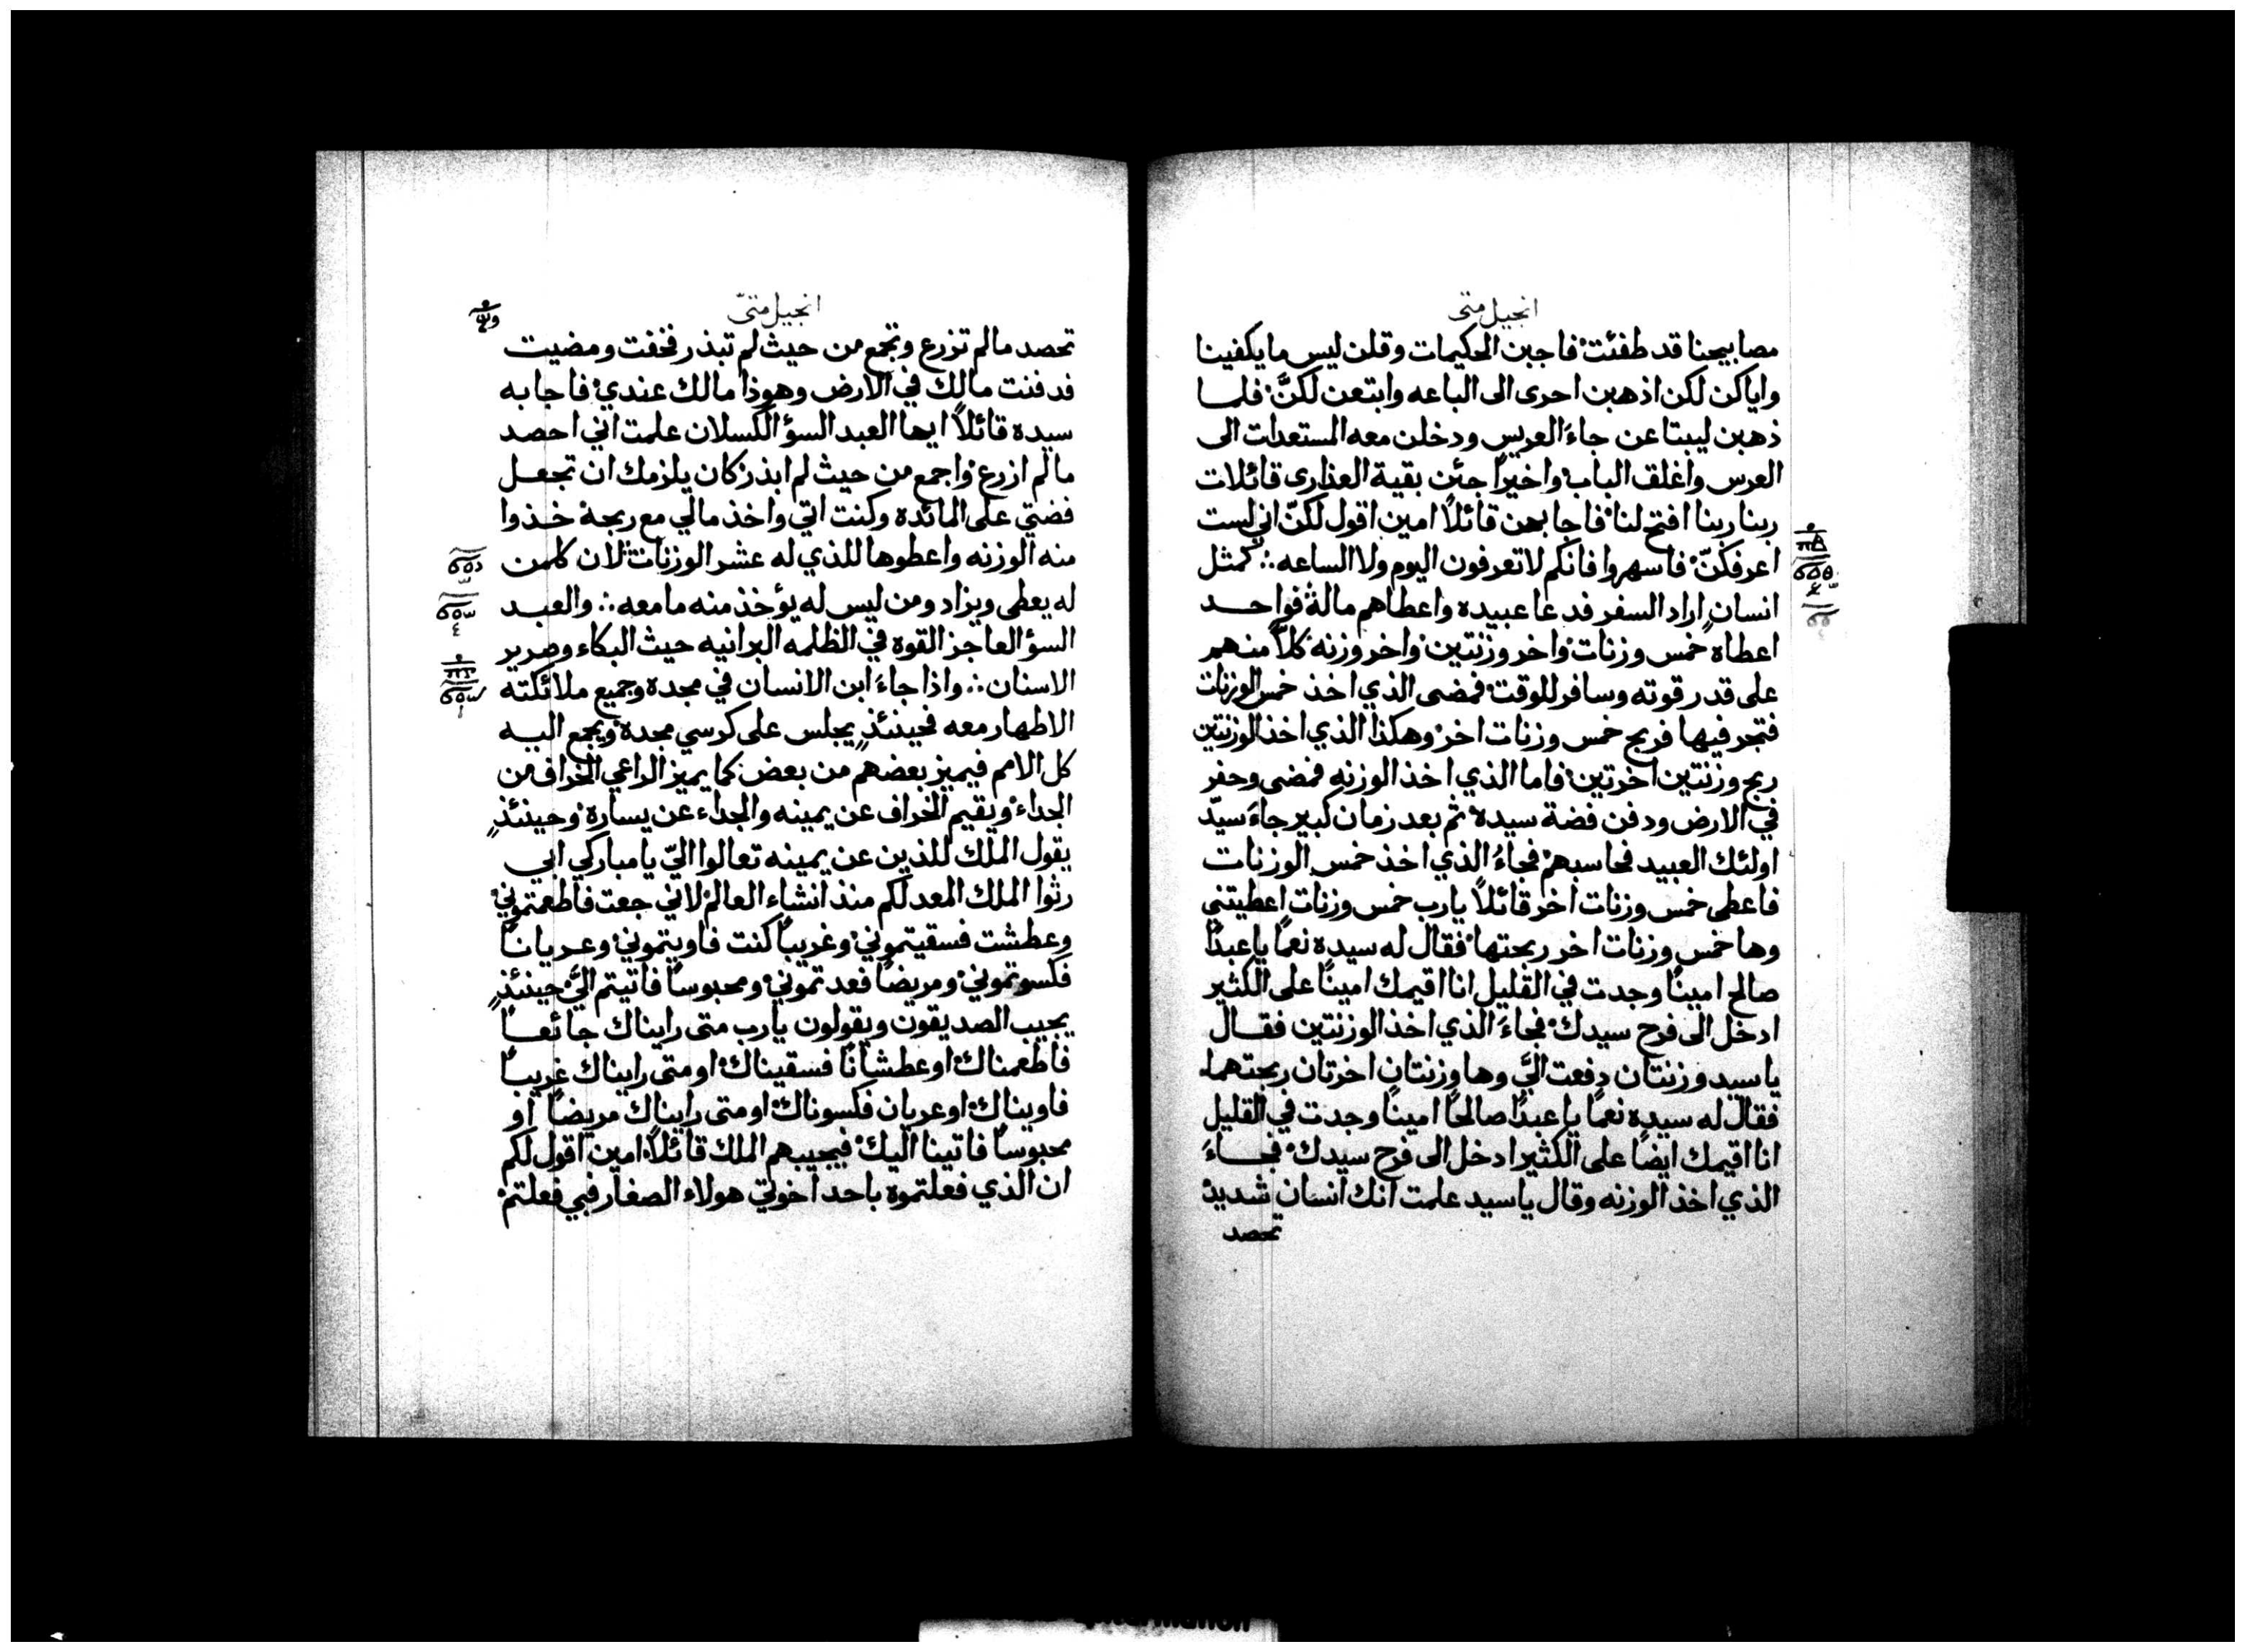 انجيل متى
مصابيحنا قد طفئت فاجبن الحكيمات وقلن ليس ما يكفينا
واياكن لكن اذهبن احرى الى الباعه وابتعن لكنَّ فلما
ذهبن ليبتاعن جاءَ العريس ودخلن معه المستعدات الى
العرس واغلق الباب واخيرًا جئن بقية العذارى قائلات
ربنا ربنا افتح لنا فاجابهن قائلًا امين اقول لكنّ اني لست
اعرفكنّ فاسهروا فانكم لا تعرفون اليوم ولا الساعه∴ كمثل
انسان اراد السفر فدعا عبيده واعطاهم ماله فواحد
اعطاه خمس وزنات واخر وزنتين واخر وزنه كلاً منهم
على قدر قوته وسافر للوقت فمضى الذي اخذ خمس الوزنات
فتجر فيها فربح خمس وزنات اخر وهكذا الذي اخذ الوزنتين
ربح وزنتين اخرتين فاما الذي اخذ الوزنه فمضى وحفر
في الارض ودفن فضة سيده ثم بعد زمان كبير جاءَ سيّد
اولئك العبيد فحاسبهم فجاءَ الذي اخذ خمس الوزنات
فاعطى خمس وزنات اخر قائلاً يا رب خمس وزنات اعطيتني
وها خمس وزنات اخر ربحتها فقال له سيده نعمًا يا عبدًا
صالح امينًا وجدت في القليل انا اقيمك امينًا على الكثير
ادخل الى فرح سيدك فجاءَ الذي اخذ الوزنتين فقال
يا سيد وزنتان دفعت اليَّ وها وزنتان اخرتان ربحتهما
فقال له سيده نعمًا يا عبدًا صالحًا امينًا وجدت في القليل
انا اقيمك ايضًا على الكثير ادخل الى فرح سيدك فجاءَ
الذي اخذ الوزنه وقال يا سيد علمت انك انسان شديد
تحصد
انجيل متىّ
تحصد مالم تزرع وتجمع من حيث لم تبذر فخفت ومضيت
فدفنت مالك في الارض وهوذا مالك عندي فاجابه
سيده قائلاً ايها العبد السؤ الكسلان علمت اني احصد
مالم ازرع واجمع من حيث لم ابذر كان يلزمك ان تجعل
فضتي على المائده وكنت اتي واخذ مالي مع ربحه خذوا
منه الوزنه واعطوها للذي له عشر الوزنات لان كلمن
له يعطى ويزاد ومن ليس له يؤخذ منه ما معه∴ والعبد
السؤ العاجز القوه في الظلمه البرانيه حيث البكاء وصرير
الاسنان∴ واذا جاءَ ابن الانسان في مجده وجميع ملائكته
الاطهار معه فحينئذٍ يجلس على كرسي مجده ويجمع اليه
كل الامم فيميز بعضهم من بعض كما يميز الراعي الخراف من
الجداء ويقيم الخراف عن يمينه والجداء عن يساره وحينئذٍ
يقول الملك للذين عن يمينه تعالوا اليّ يا مباركي ابي
رثوا الملك المعد لكم منذ انشاء العالم لاني جعت فاطعمتموني
وعطشت فسقيتموني وغريبًا كنت فاويتموني وعريانًا
فكسوتموني ومريضًا فعدتموني ومحبوسًا فاتيتم اليَّ حينئذٍ
يجيب الصديقون ويقولون يا رب متى رايناك جائعًا
فاطعمناك او عطشانًا فسقيناك او متى رايناك غريبًا
فاويناك او عريان فكسوناك او متى رايناك مريضًا او
محبوسًا فاتينا اليك فيجيبهم الملك قائلاً امين اقول لكم
ان الذي فعلتموه باحد اخوتي هولاء الصغار فبي فعلتم